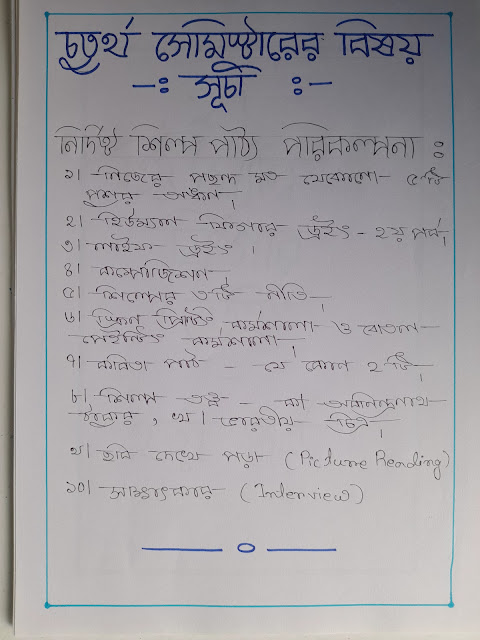 চতুর্থ সেমিস্টারের বিষয়
-: সূচী :-
নির্দিষ্ট শিল্প পাঠ্য পরিকল্পনা :
১। নিজের পছন্দ মত যেকোনো ৫টি
পশুর অঙ্কন।
২। হিউম্যান ফিগার ড্রইং - ২য় পর্ব।
৩। লাইফ ড্রইং।
৪। কম্পোজিশন।
৫। শিল্পের ৩টি নীতি।
৬। স্ক্রিন প্রিন্টিং কর্মশালা ও বোতল
পেইন্টিং কর্মশালা।
৭। কবিতা পাঠ - যে কোন ২টি।
৮। শিল্প তত্ত্ব - ক। অবনিন্দ্রনাথ
ঠাকুর, খ। ভারতীয় চিত্র।
৯। ছবি দেখে পড়া (Picture Reading)
১০। সাক্ষাৎকার (Interview)